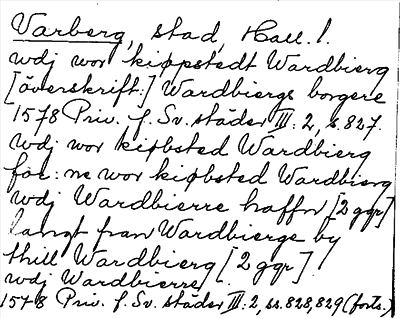 Varberg, stad, Hall. l.
wdj wor kiøpstedt Wardbierg
[överskrift:] Wardbiergs borgere
1578 Priv. f. Sv. städer III: 2, s. 827.
wdj wor kiøbsted Wardbierg
for:ne wor kiøbsted Wardbierg
wdj Wardbierre haffn [2 ggr]
langt fran Wardbierge by
thill Wardbierg [2 ggr]
wdj Wardbierre
1578 Priv. f. Sv. städer III: 2, ss. 828, 829 (forts.)